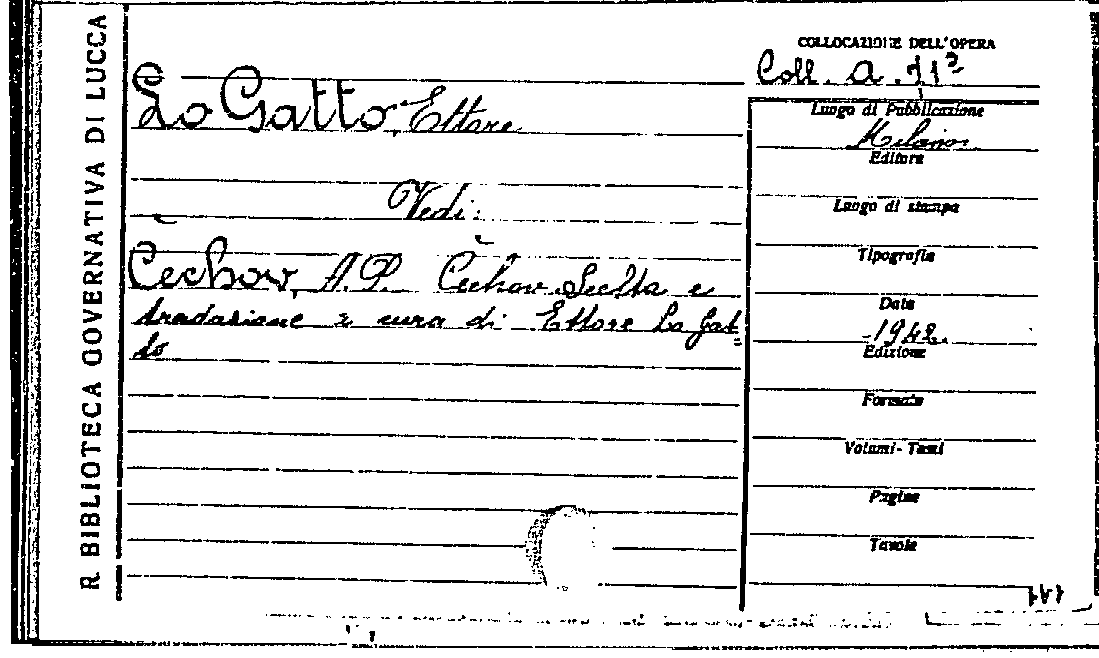 R. BIBLIOTECA GOVERNATIVA DI LUCCA
COLLOCAZIONE DELL'OPERA
Coll. A.
Lo Gatto, Ettore
Luogo di Pubblicazione
Milano.
Editore
Vedi:
Luogo di stampa
Tipografia
Čechov, A. P. Čechov. Scelta e
Data
traduzione a cura di Ettore Lo Gat=
1942.
to
Edizione
Formato
Volumi - Tomi
Pagine
Tavole